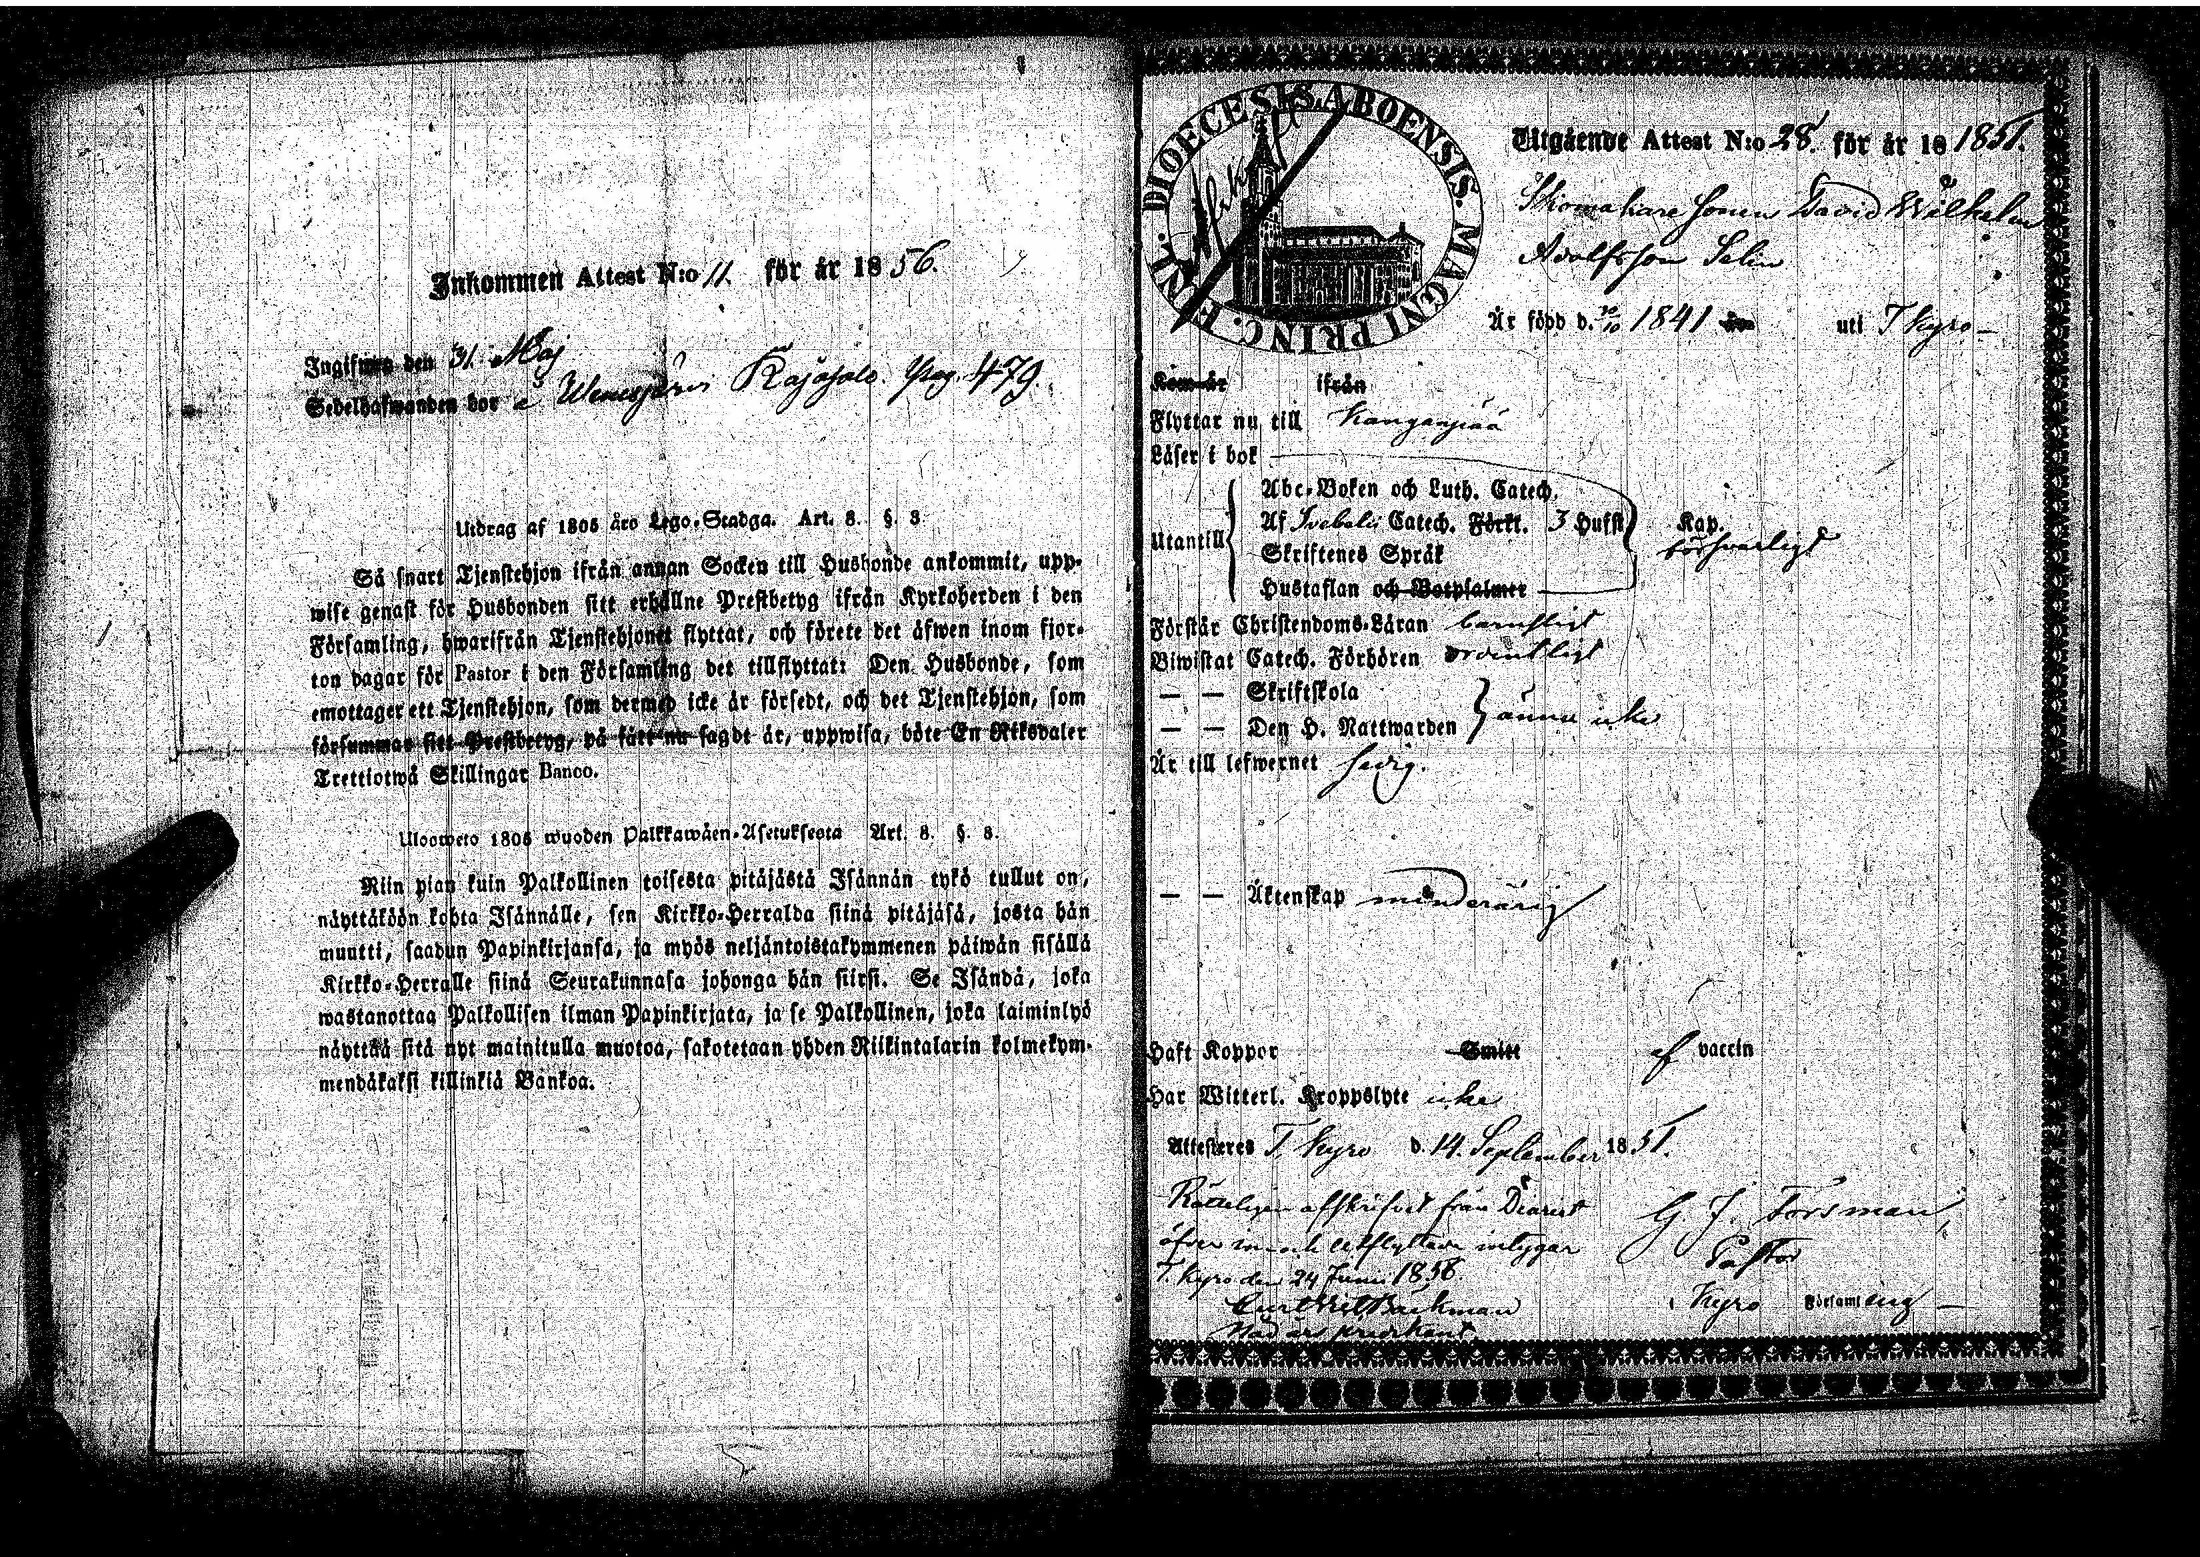 Inkommen Attest N:o 11. för år 1856.
Ingifwen den 31. Maj
Sedelhafwanden bor å Wenesjärvi Rajajalo. Pag. 479.
Utdrag af 1805 års Lego-Stadga. Art. 8. §. 8
Så snart Tjenstehjon ifrån annan Socken till Husbonde ankommit, upp-
wise genast för Husbonden sitt erhållne Prestbetyg ifrån Kyrkoherden i den
Församling, hwarifrån Tjenstehjonet flyttat, och förete det äfwen inom fjor-
ton dagar för Pastor i den Församling det tillflyttat: Den Husbonde, som
emottager ett Tjenstehjon, som dermed icke är försedt, och det Tjenstehjon, som
försummar sitt Prestbetyg, på sätt nu sagdt är, uppwisa, böte En Riksdaler
Trettiotwå Skillingar Banco.
Ulosweto 1805 wuoden Palkkawäen-Asetuksesta Art. 8. §. 8.
Niin pian kuin Palkollinen toisesta pitäjästä Isännän tykö tullut on,
näyttäköön kohta Isännälle, sen Kirkko-Herralda siinä pitäjäsä, josta hän
muutti, saadun Papinkirjansa, ja myös neljäntoistakymmenen päiwän sisällä
Kirkko-Herralle siinä Seurakunnasa johonga hän siirsi. Se Isändä, joka
wastanottaa Palkollisen ilman Papinkirjata, ja se Palkollinen, joka laiminlyö
näyttää sitä nyt mainitulla muotoa, sakotetaan yhden Riikintalarin kolmekym-
mendäkaksi killinkiä Bankoa.
DIOECESIS ABOENSIS. MAGNI PRINC. FINL.
Utgående Attest N:o 28. för år 18 1851.
Skomakare sonen David Wilhelm
Adolfsson Selin
Är född d. 30/10 1841 uti T Kyro
Kom år ifrån
Flyttar nu till Kangaspää
Läser i bok
Utantill
Abc-Boken och Luth. Catech.
Af Svebelii Catech. Förkl. 3 Hufst Kap.
försvarligt
Skriftenes Språk
Hustaflan och Botpsalmer
Förstår Christendoms-Läran barnsligt
Biwistat Catech. Förhören ordentligt
— — Skriftskola
— — Den H. Nattwarden ännu icke
Är till lefwernet sedig.
— — Äktenskap minderårig
Haft Koppor Smitt af vaccin
Har Witterl. Kroppslyte icke
Attesteres T. Kyro d. 14. September 1851.
Rätteligen afskrifvet från Diariet
öfver in och utflyttade intygar
T. Kyro den 24 Junii 1856.
G. J. Forsman,
Pastor
Kyro Församling